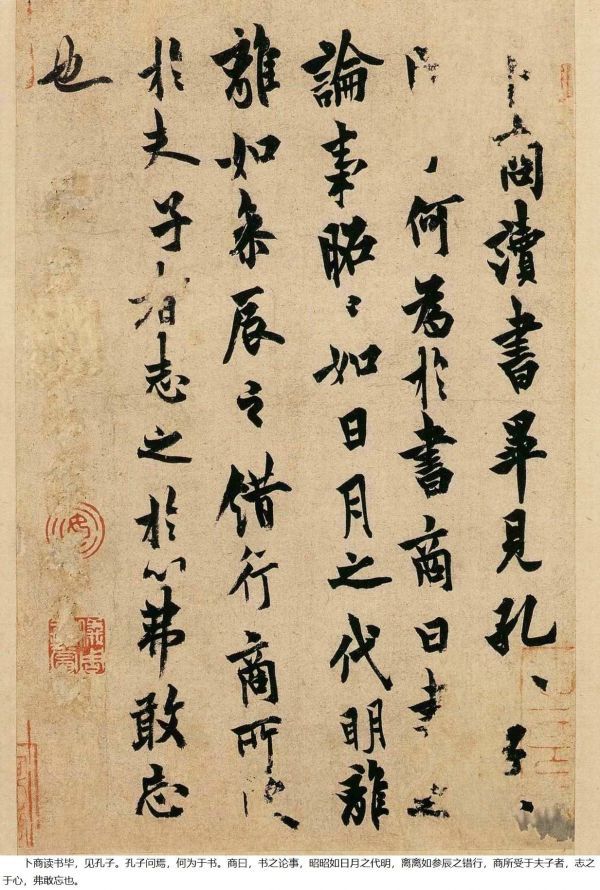 卜商讀書畢見孔〻子〻
問何為於書商曰書之
論事昭〻如日月之代明離
離如參辰之錯行商所受
於夫子者志之於心弗敢忘
也
卜商读书毕，见孔子。孔子问焉，何为于书。商曰，书之论事，昭昭如日月之代明，离离如参辰之错行，商所受于夫子者，志之
于心，弗敢忘也。